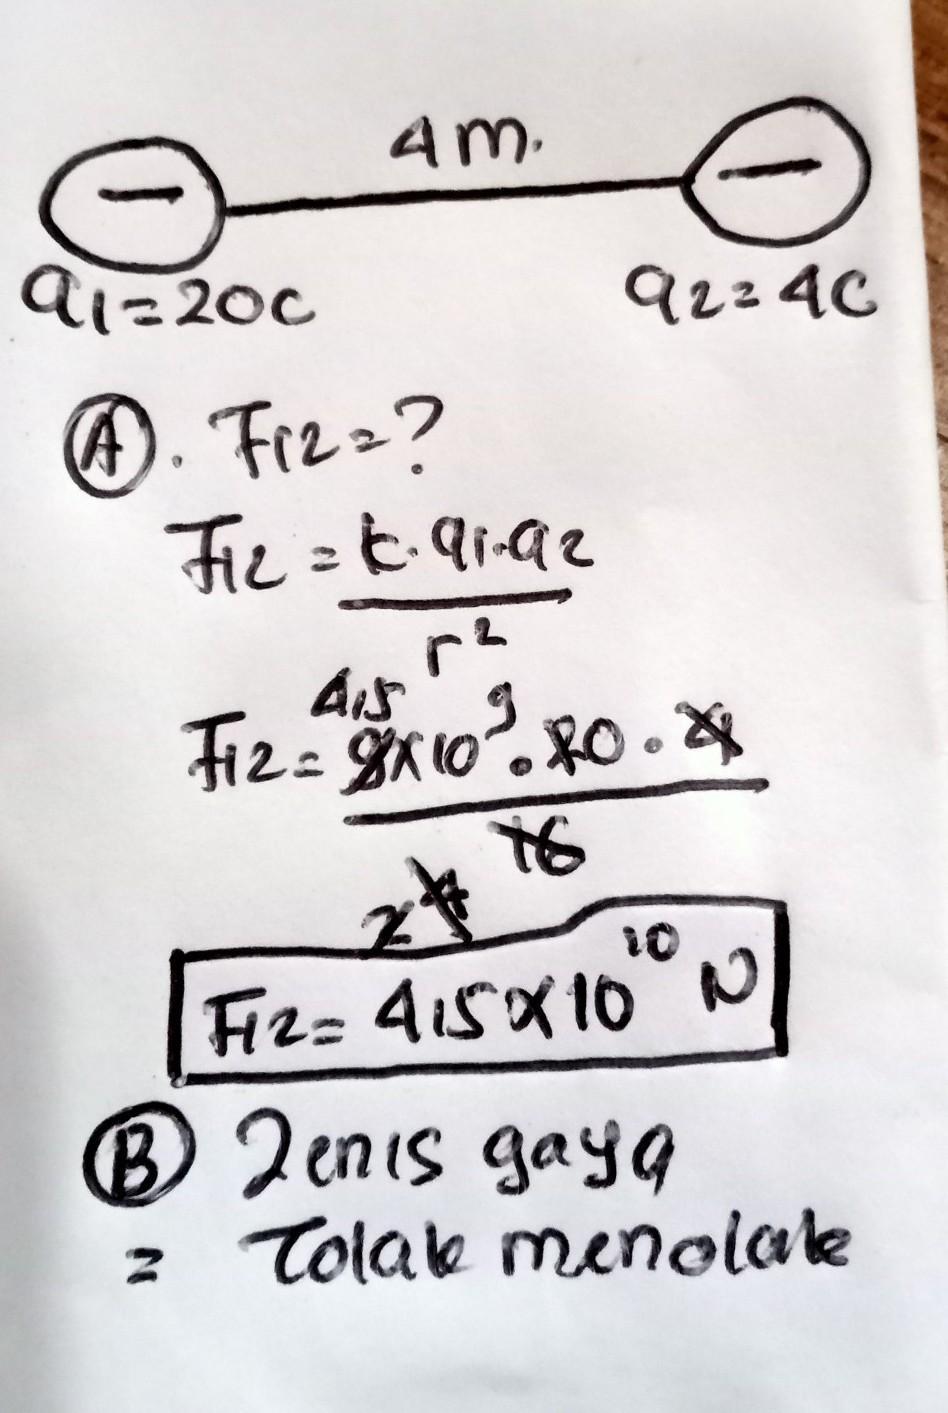 4m.
— —
q1=20C q2=4C
(A). F12=?
F12 = k.q1.q2
r²
4,5
F12= 9x10⁹.20.4
16
2 4
F12= 4,5x10¹⁰ N
(B) Jenis gaya
= Tolak menolak